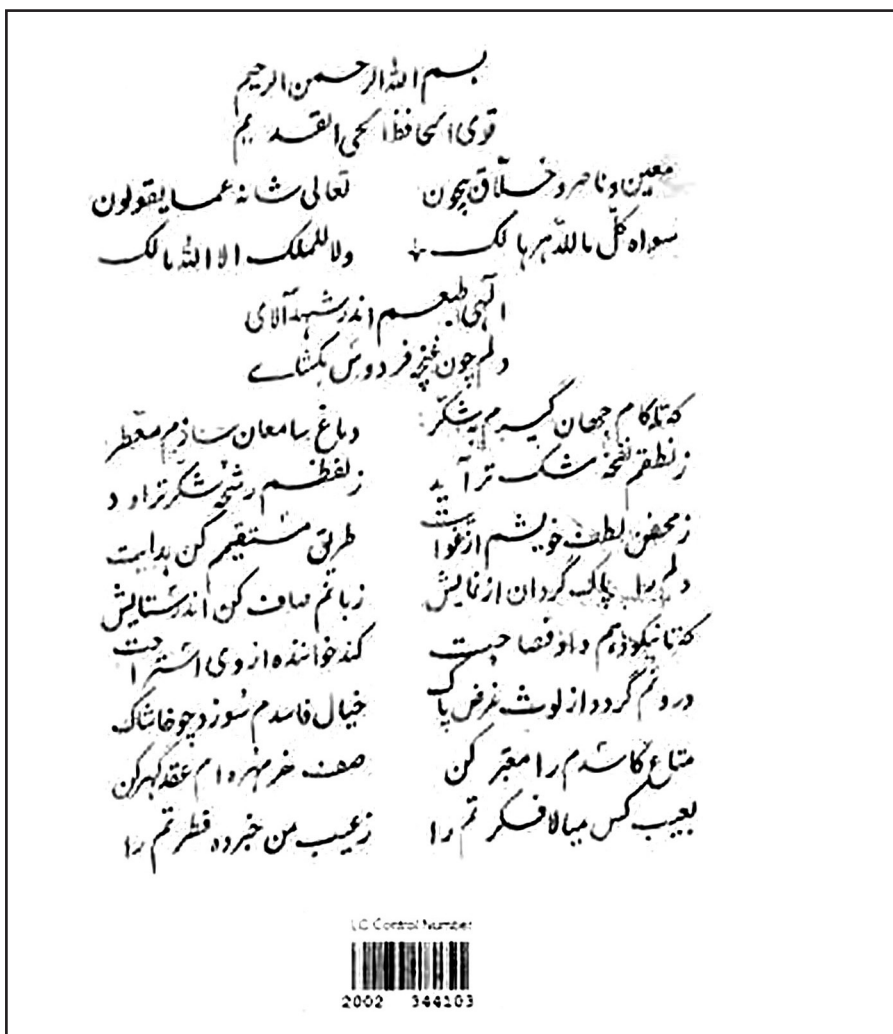 بسم الله الرحمن الرحیم
قوی الحافظ الحی القدیم
معین و ناصر و خلّاق بیچون تعالی شانه عما یقولون
سواه کلّ ما للدّهر هالک ولا للملک الا الله مالک
الٓهی طبعم اندر شهد آلای
دلم چون غنچه فردوس بکشاے
که تا کام جهان گیرم بشکّر دماغ سامعان سازم معطر
ز نطقم نفحهٔ مشک تر آید ز لفظم رشحهٔ شکّر تراود
ز محض لطف خویشم از غوایت طریق مستقیم کن هدایت
دلم را پاک گردان از نمایش زبانم صاف کن اندر ستایش
که تا نیکو دهم داد فصاحت کند خواننده از وی استراحت
درونم گردد از لوث غرض پاک خیال فاسدم سوزد چو خاشاک
متاع کاسدم را معتبر کن صف خرمهره‌ام عقد گهر کن
بعیب کس میالا فکرتم را ز عیب من خبر ده فطرتم را
LC Control Number
2002 344103